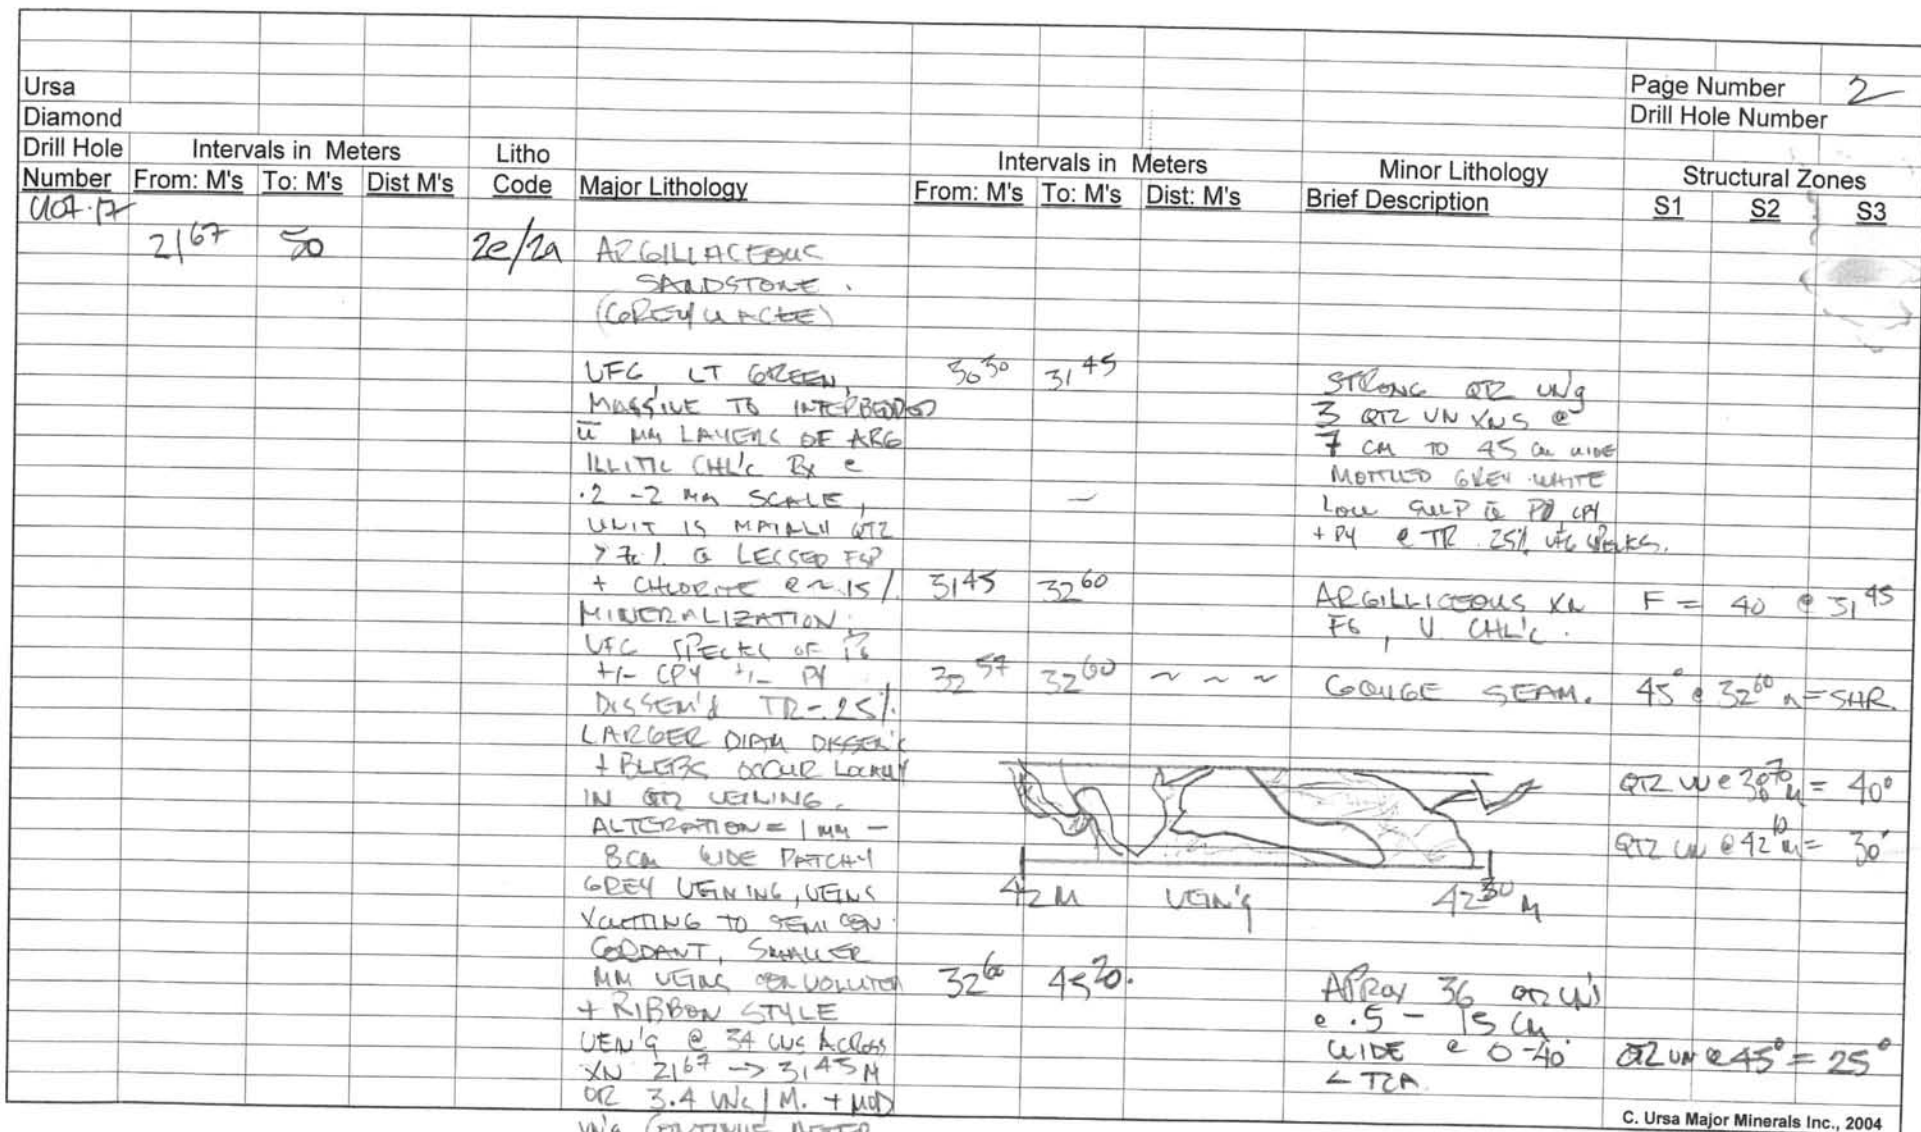 Ursa
Page Number 2
Diamond
Drill Hole Number
Drill Hole Intervals in Meters Litho Intervals in Meters Minor Lithology Structural Zones
Number From: M's To: M's Dist M's Code Major Lithology From: M's To: M's Dist: M's Brief Description S1 S2 S3
21 67 50 2e/2a ARGILLACEOUS
SANDSTONE.
(GREYWACKE)
VFG, LT GREEN,
MASSIVE TO INTERBEDDED
MM LAYERS OF ARG
ILLITIC CHL'C RX @
.2 - 2 MM SCALE,
UNIT IS MAINLY QTZ
LESSER FSP
+ CHLORITE @ ~ 15%
MINERALIZATION:
VFG SPECKS OF
+/- CPY +/- PY
DISSEM'd TR-.25%.
LARGER DIAM DISSEM'S
+ BLEBS OCCUR LOCALLY
IN QTZ VEINING.
ALTERATION = 1 MM -
8CM WIDE PATCHY
GREY VEINING, VEINS
XCUTTING TO SEMI CON
CORDANT, SMALLER
MM VEINS CONVOLUTED
+ RIBBON STYLE
VEIN'g @ 34 VNS ACROSS
XN 21 67 -> 31 45 M
OR 3.4 VNS/M. + MOD
VN'g CONTINUE
30 30 31 45 STRONG QTZ VN'g
3 QTZ VN XNS @
7 CM TO 45 CM WIDE
MOTTLED GREY WHITE
LOW SULP PO CPY
+ PY @ TR .25% VFG SPECKS.
31 45 32 60 ARGILLICEOUS XN F = 40 @ 31 45
FG, V. CHL'C.
32 57 32 60 ~ ~ ~ GOUGE SEAM. 45° @ 32 60 M = SHR.
QTZ VN @ 30 70 M = 40°
QTZ VN @ 42 10 M = 30°
42 M VEIN'g 42 30 M
32 60 45 20. APROX 36 QTZ VN'S
@ .5 - 15 CM
WIDE @ 0-40° QTZ VN @ 45° = 25°
∠ TCA.
C. Ursa Major Minerals Inc., 2004